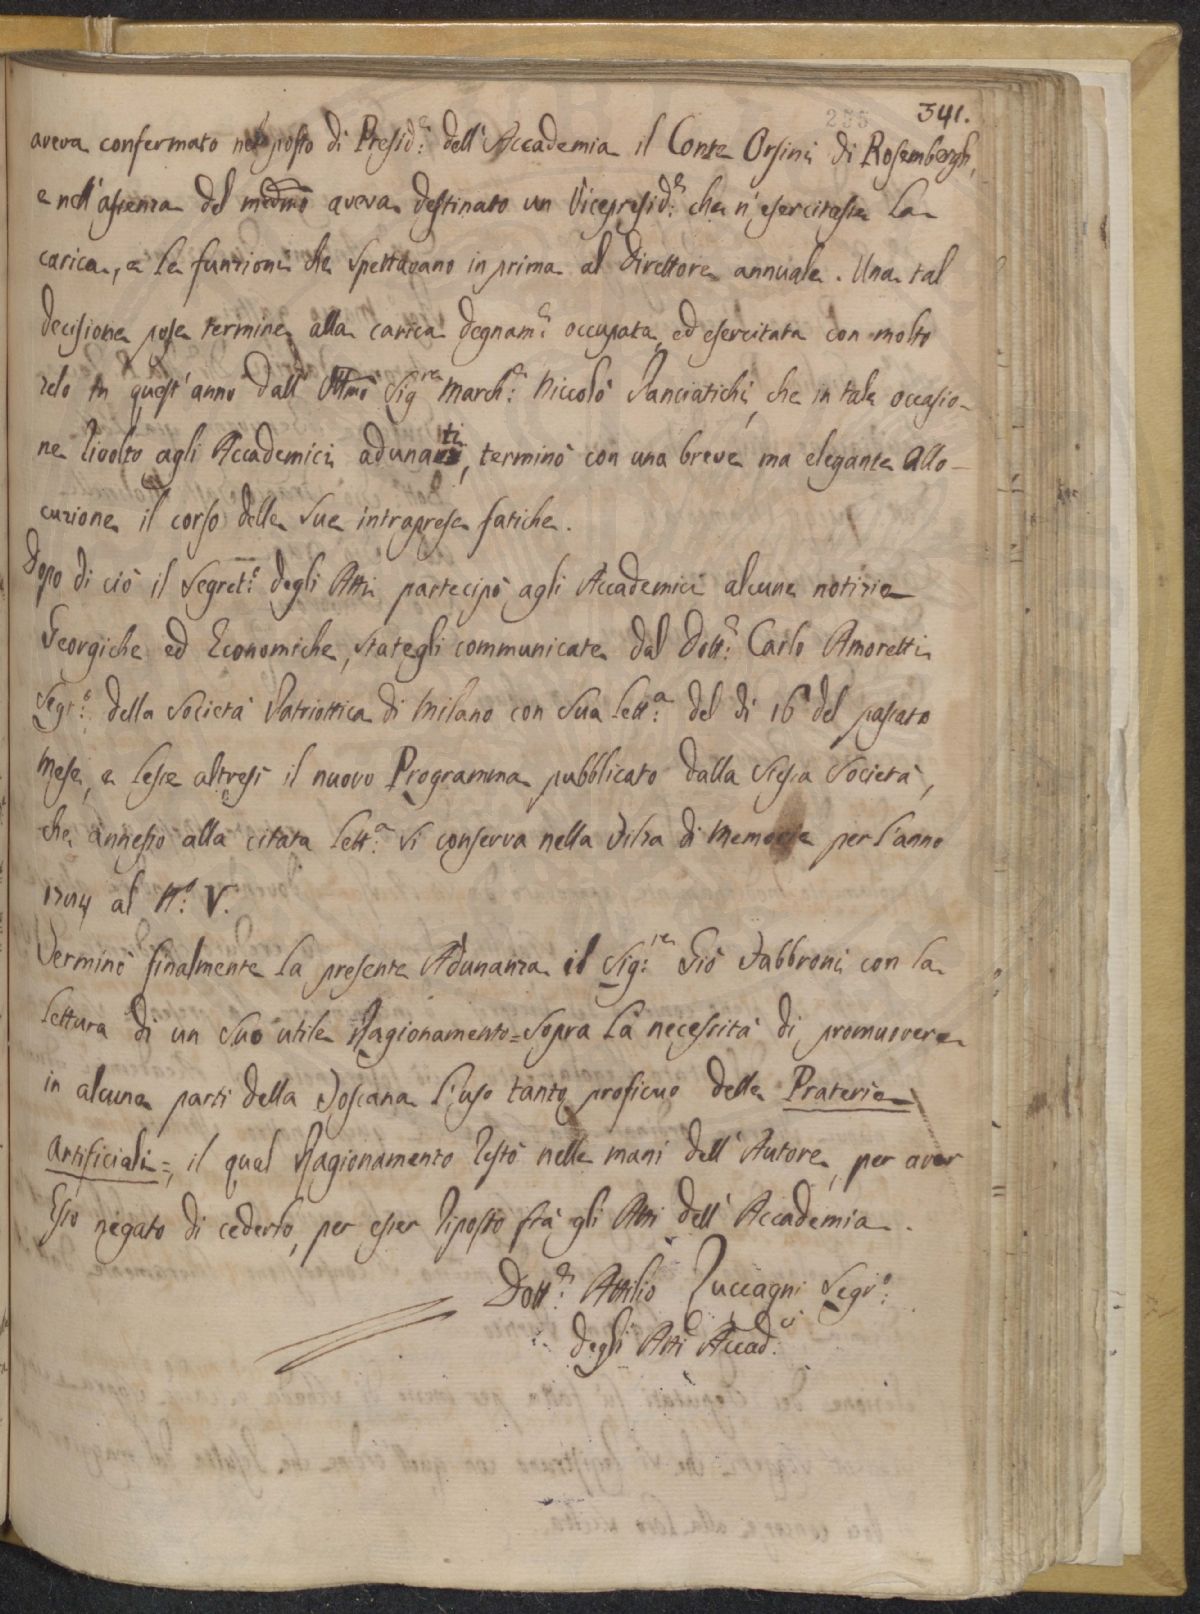 235 341.
aveva confermato nel posto di Presid.e dell'Accademia il Conte Orsini di Rosembergh,
e nell'assenza del medmo aveva destinato un Vicepresid.e che n'esercitasse la
carica, e le funzioni che spettavano in prima al Direttore annuale. Una tal
decisione pose termine alla carica degnam.e occupata, ed esercitata con molto
zelo in quest'anno dall'Illmo Sig.re March.e Niccolò Panciatichi, che in tale occasio-
ne rivolto agli Accademici adunati, terminò con una breve, ma elegante Allo-
cuzione il corso delle sue intraprese fatiche.
Dopo di ciò il Segret.o degli Atti partecipò agli Accademici alcune notizie
Georgiche ed Economiche, stategli communicate dal Dott.e Carlo Amoretti
Segr.o della Società Patriottica di Milano con sua lett.a del dì 16 del passato
Mese, e lesse altresì il nuovo Programma pubblicato dalla stessa Società,
che annesso alla citata lett.a si conserva nella Filza di Memorie per l'anno
1794 al N.o V.
Terminò finalmente la presente Adunanza il Sig.re Giò Fabbroni con la
lettura di un suo utile Ragionamento = Sopra la necessità di promuovere
in alcune parti della Toscana l'uso tanto proficuo delle Praterie
Artificiali =, il qual Ragionamento restò nelle mani dell'Autore, per aver
Esso negato di cederlo, per esser riposto frà gli Atti dell'Accademia.
Dott.e Attilio Zuccagni Segr.o
degli Atti Accad.ci